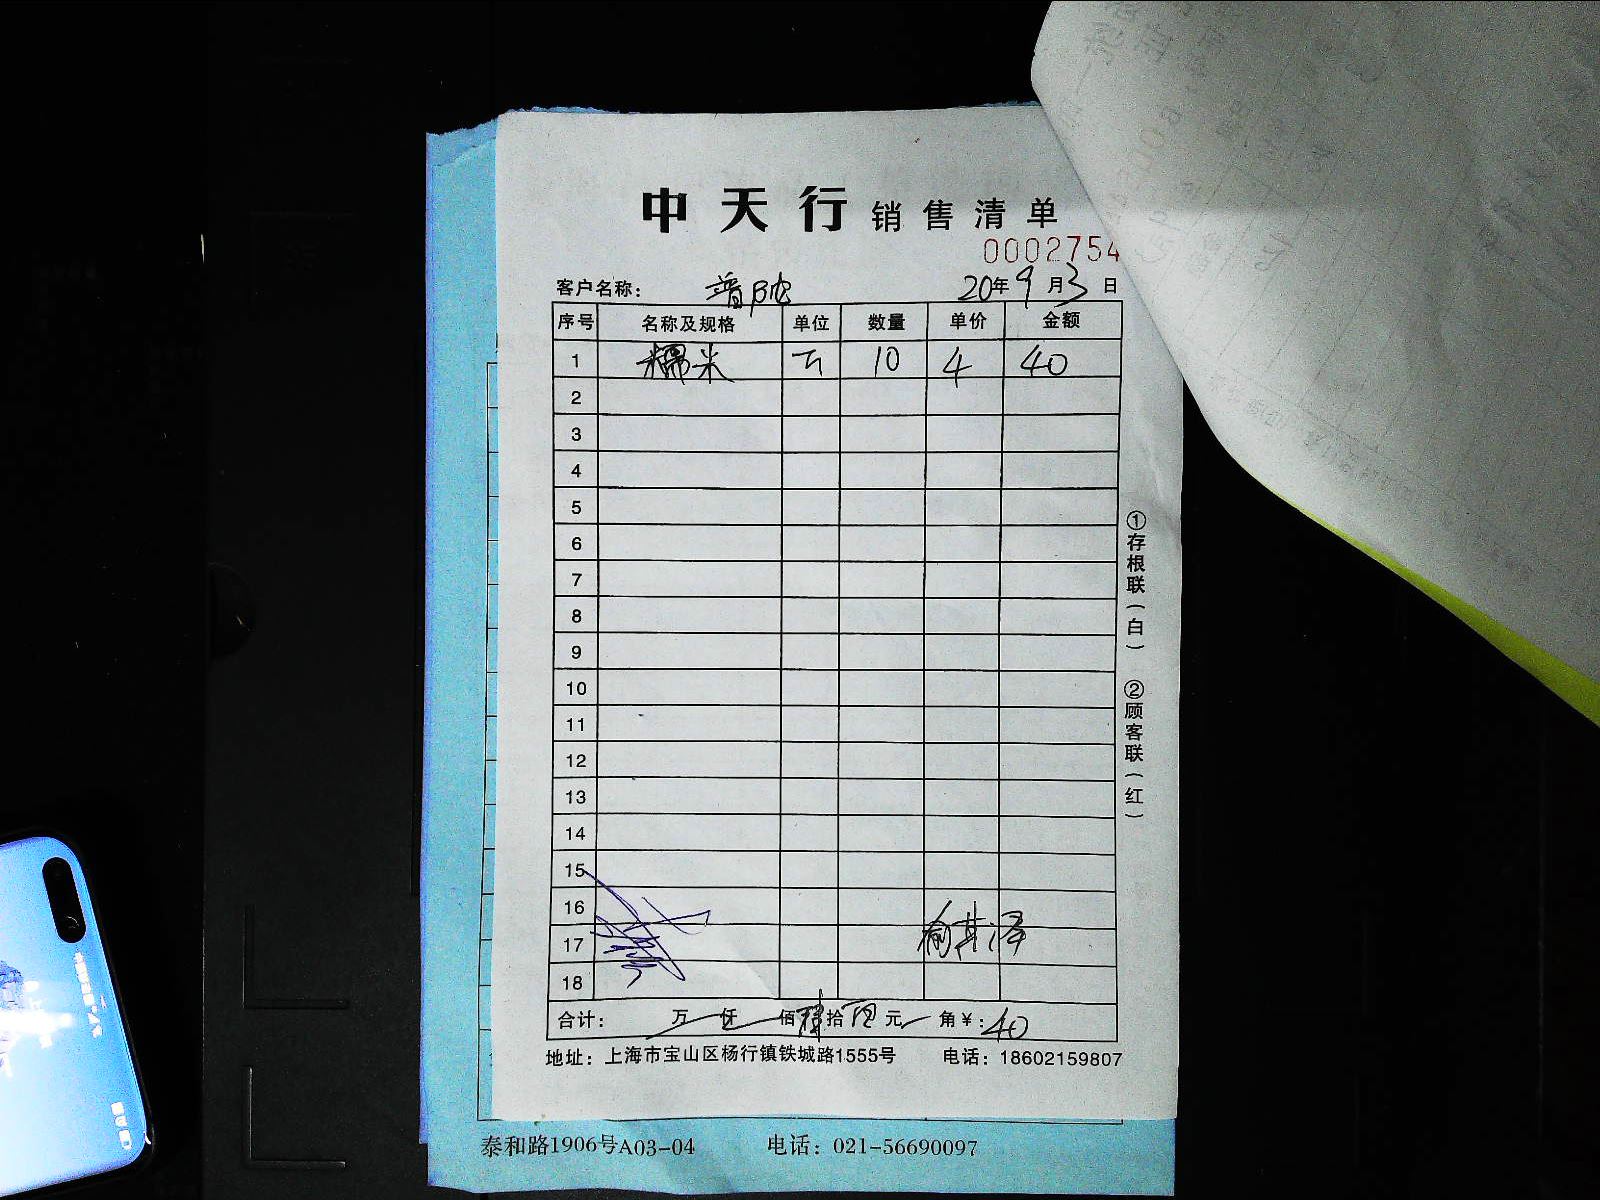 中天行销售清单
0002754
客户名称： 普陀 20年9月3日
序号 名称及规格 单位 数量 单价 金额
1 糯米 斤 10 4 40
2
3
4
5
6
7
8
9
10
11
12
13
14
15
16
17
18
合计： 万 仟 佰 肆拾 元 角 ￥：40
地址：上海市宝山区杨行镇铁城路1555号 电话：18602159807
①存根联（白） ②顾客联（红）
泰和路1906号A03-04 电话：021-56690097